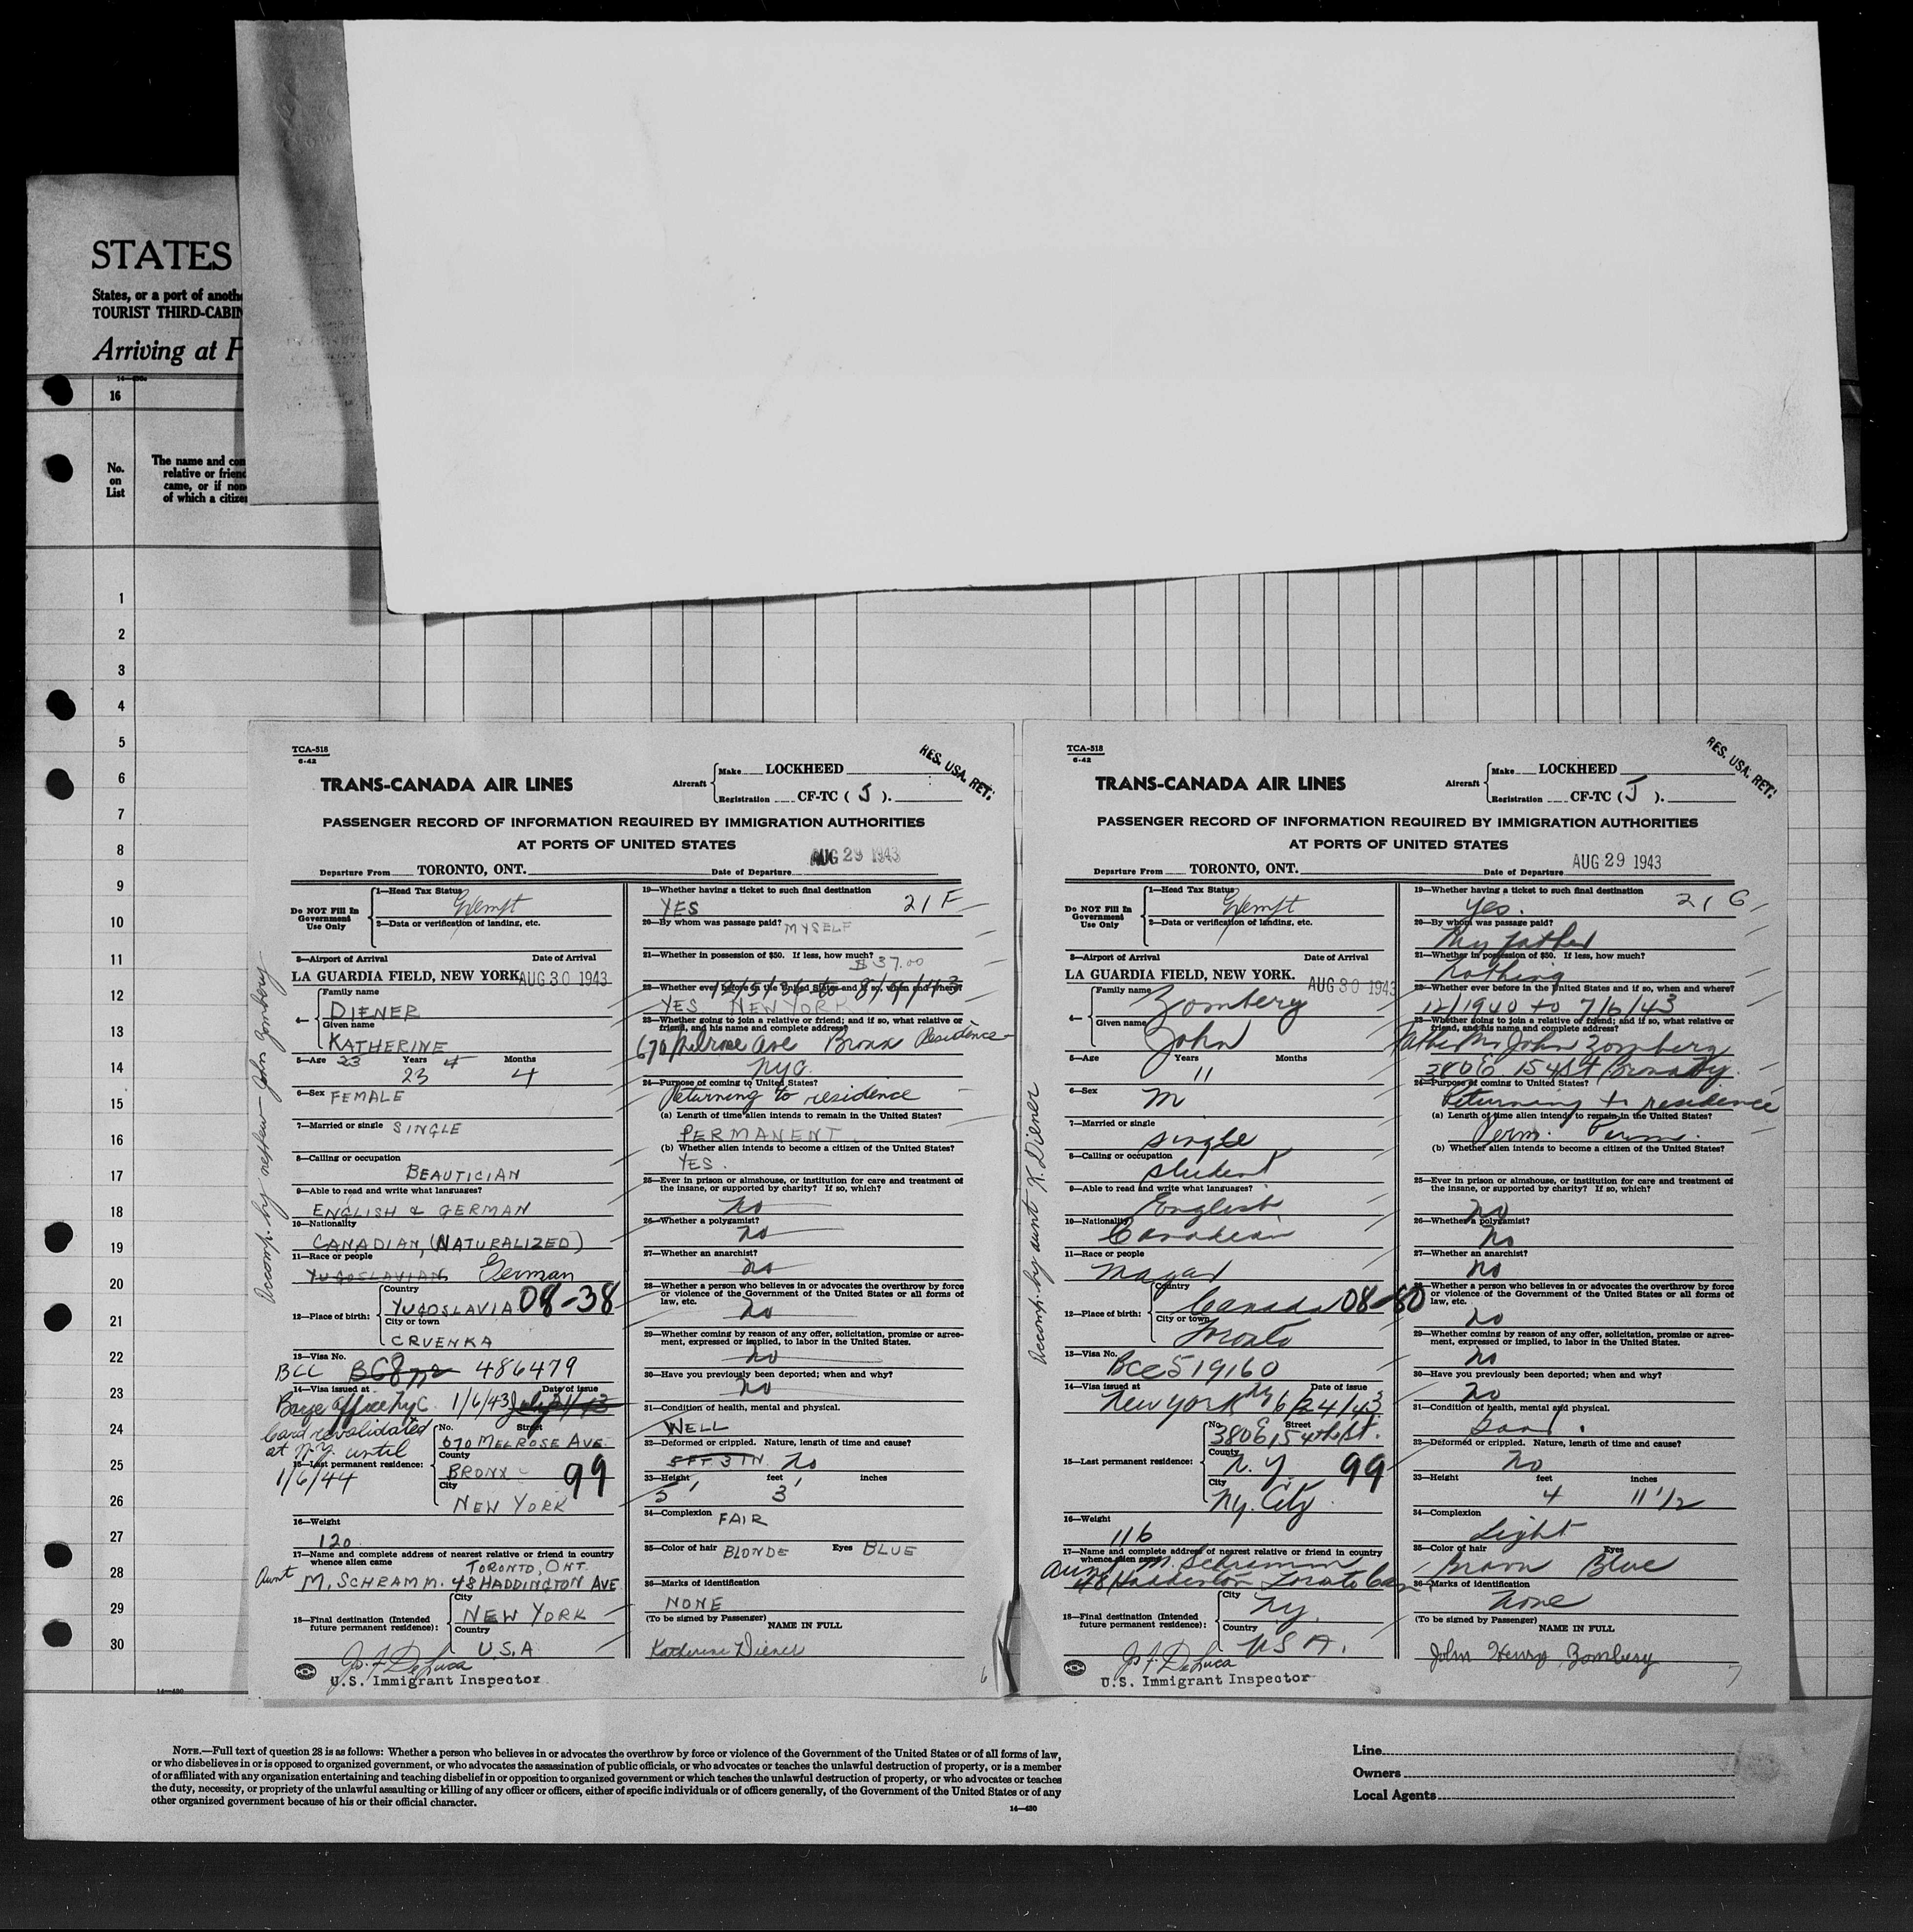 STATES
States, or a port of anothe
TOURIST THIRD-CABIN
Arriving at P
16
No.
on
List
The name and com
relative or friend
came, or if none
of which a citizen
1
2
3
4
5
6
7
8
9
10
11
12
13
14
15
16
17
18
19
20
21
22
23
24
25
26
27
28
29
30
TCA-518
6-42
TRANS-CANADA AIR LINES
Aircraft
Make LOCKHEED
Registration CF-TC ( J ).
RES. USA. RET:
PASSENGER RECORD OF INFORMATION REQUIRED BY IMMIGRATION AUTHORITIES
AT PORTS OF UNITED STATES
AUG 29 1943
Departure From TORONTO, ONT. Date of Departure
Do NOT Fill In
Government
Use Only
1—Head Tax Status
Exempt
2—Data or verification of landing, etc.
3—Airport of Arrival Date of Arrival
LA GUARDIA FIELD, NEW YORK. AUG 30 1943
4—
Family name
DIENER
Given name
KATHERINE
5—Age 23 Years 4 Months
23 4
6—Sex FEMALE
7—Married or single SINGLE
8—Calling or occupation
BEAUTICIAN
9—Able to read and write what languages?
ENGLISH & GERMAN
10—Nationality
CANADIAN, (NATURALIZED)
11—Race or people
YUGOSLAVIAN German
12—Place of birth:
Country
YUGOSLAVIA 08-38
City or town
CRVENKA
13—Visa No.
BCC 486479
14—Visa issued at Date of issue
office NYC 1/6/43
Card revalidated
at N.Y. until
1/6/44
15—Last permanent residence:
No. Street
670 MELROSE AVE
County
BRONX 99
City
NEW YORK
16—Weight
120
17—Name and complete address of nearest relative or friend in country
whence alien came TORONTO, ONT.
Aunt M. SCHRAMM. 48 HADDINGTON AVE
18—Final destination (Intended
future permanent residence):
City
NEW YORK
Country
U.S.A
Js. F. DeLuca
U.S. Immigrant Inspector
Accomp. by nephew John Zombery
19—Whether having a ticket to such final destination
YES 21 F
20—By whom was passage paid? MYSELF
21—Whether in possession of $50. If less, how much?
$37.00
22—Whether ever before in the United States and if so, when and where?
12/5/36 to 8/9/43
YES NEW YORK
23—Whether going to join a relative or friend; and if so, what relative or
friend, and his name and complete address?
670 Melrose Ave Bronx Residence
NYC.
24—Purpose of coming to United States?
Returning to residence
(a) Length of time alien intends to remain in the United States?
PERMANENT
(b) Whether alien intends to become a citizen of the United States?
YES.
25—Ever in prison or almshouse, or institution for care and treatment of
the insane, or supported by charity? If so, which?
No
26—Whether a polygamist?
No
27—Whether an anarchist?
no
28—Whether a person who believes in or advocates the overthrow by force
or violence of the Government of the United States or all forms of
law, etc.
No
29—Whether coming by reason of any offer, solicitation, promise or agree-
ment, expressed or implied, to labor in the United States.
no
30—Have you previously been deported; when and why?
No
31—Condition of health, mental and physical.
WELL
32—Deformed or crippled. Nature, length of time and cause?
5FT 3 IN. No
33—Height feet inches
5' 3'
34—Complexion FAIR
35—Color of hair BLONDE Eyes BLUE
36—Marks of identification
NONE
(To be signed by Passenger) NAME IN FULL
Katherine Diener
6
TCA-518
6-42
TRANS-CANADA AIR LINES
Aircraft
Make LOCKHEED
Registration CF-TC ( J ).
RES. USA. RET:
PASSENGER RECORD OF INFORMATION REQUIRED BY IMMIGRATION AUTHORITIES
AT PORTS OF UNITED STATES
AUG 29 1943
Departure From TORONTO, ONT. Date of Departure
Do NOT Fill In
Government
Use Only
1—Head Tax Status
Exempt
2—Data or verification of landing, etc.
3—Airport of Arrival Date of Arrival
LA GUARDIA FIELD, NEW YORK. AUG 30 1943
4—
Family name
Zombery
Given name
John
5—Age Years Months
11
6—Sex M
7—Married or single
single
8—Calling or occupation
student
9—Able to read and write what languages?
English
10—Nationality
Canadian
11—Race or people
Magar
12—Place of birth:
Country
Canada 08-80
City or town
Toronto
13—Visa No.
BCC 519160
14—Visa issued at Date of issue
New York Ny 6/24/43
15—Last permanent residence:
No. Street
380 E 154th St.
County
N.Y. 99
City
Ny. City
16—Weight
116
17—Name and complete address of nearest relative or friend in country
whence alien came
Aunt M. Schramm
48 Haddington Toronto Can
18—Final destination (Intended
future permanent residence):
City
Ny.
Country
U S A.
Js. F. DeLuca
U.S. Immigrant Inspector
Accomp. by aunt K. Diener
19—Whether having a ticket to such final destination
yes. 21 G
20—By whom was passage paid?
My father
21—Whether in possession of $50. If less, how much?
nothing
22—Whether ever before in the United States and if so, when and where?
12/1940 to 7/6/43
23—Whether going to join a relative or friend; and if so, what relative or
friend, and his name and complete address?
Father Mr John Zombery
380 E. 154 St Bronx Ny.
24—Purpose of coming to United States?
Returning to residence
(a) Length of time alien intends to remain in the United States?
Perm. Perm.
(b) Whether alien intends to become a citizen of the United States?
25—Ever in prison or almshouse, or institution for care and treatment of
the insane, or supported by charity? If so, which?
no
26—Whether a polygamist?
No
27—Whether an anarchist?
no
28—Whether a person who believes in or advocates the overthrow by force
or violence of the Government of the United States or all forms of
law, etc.
no
29—Whether coming by reason of any offer, solicitation, promise or agree-
ment, expressed or implied, to labor in the United States.
no
30—Have you previously been deported; when and why?
no
31—Condition of health, mental and physical.
Good.
32—Deformed or crippled. Nature, length of time and cause?
no
33—Height feet inches
4 11 1/2
34—Complexion
Light
35—Color of hair Eyes
Brown Blue
36—Marks of identification
None
(To be signed by Passenger) NAME IN FULL
John Henry Zombery
7
14—430
NOTE.—Full text of question 28 is as follows: Whether a person who believes in or advocates the overthrow by force or violence of the Government of the United States or of all forms of law,
or who disbelieves in or is opposed to organized government, or who advocates the assassination of public officials, or who advocates or teaches the unlawful destruction of property, or is a member
of or affiliated with any organization entertaining and teaching disbelief in or opposition to organized government or which teaches the unlawful destruction of property, or who advocates or teaches
the duty, necessity, or propriety of the unlawful assaulting or killing of any officer or officers, either of specific individuals or of officers generally, of the Government of the United States or of any
other organized government because of his or their official character.
14—430
Line
Owners
Local Agents